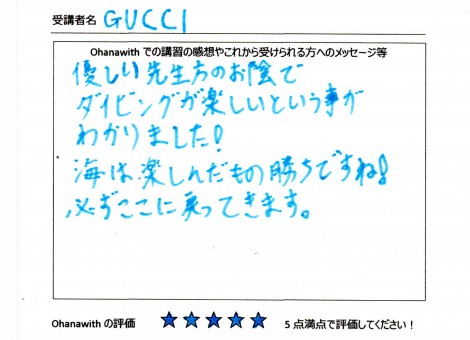 受講者名 GUCCI
Ohanawith での講習の感想やこれから受けられる方へのメッセージ等
優しい先生方のお陰で
ダイビングが楽しいという事が
わかりました!
海は楽しんだもの勝ちですね!
必ずここに戻ってきます。
Ohanawith の評価 ★★★★★ 5 点満点で評価してください!